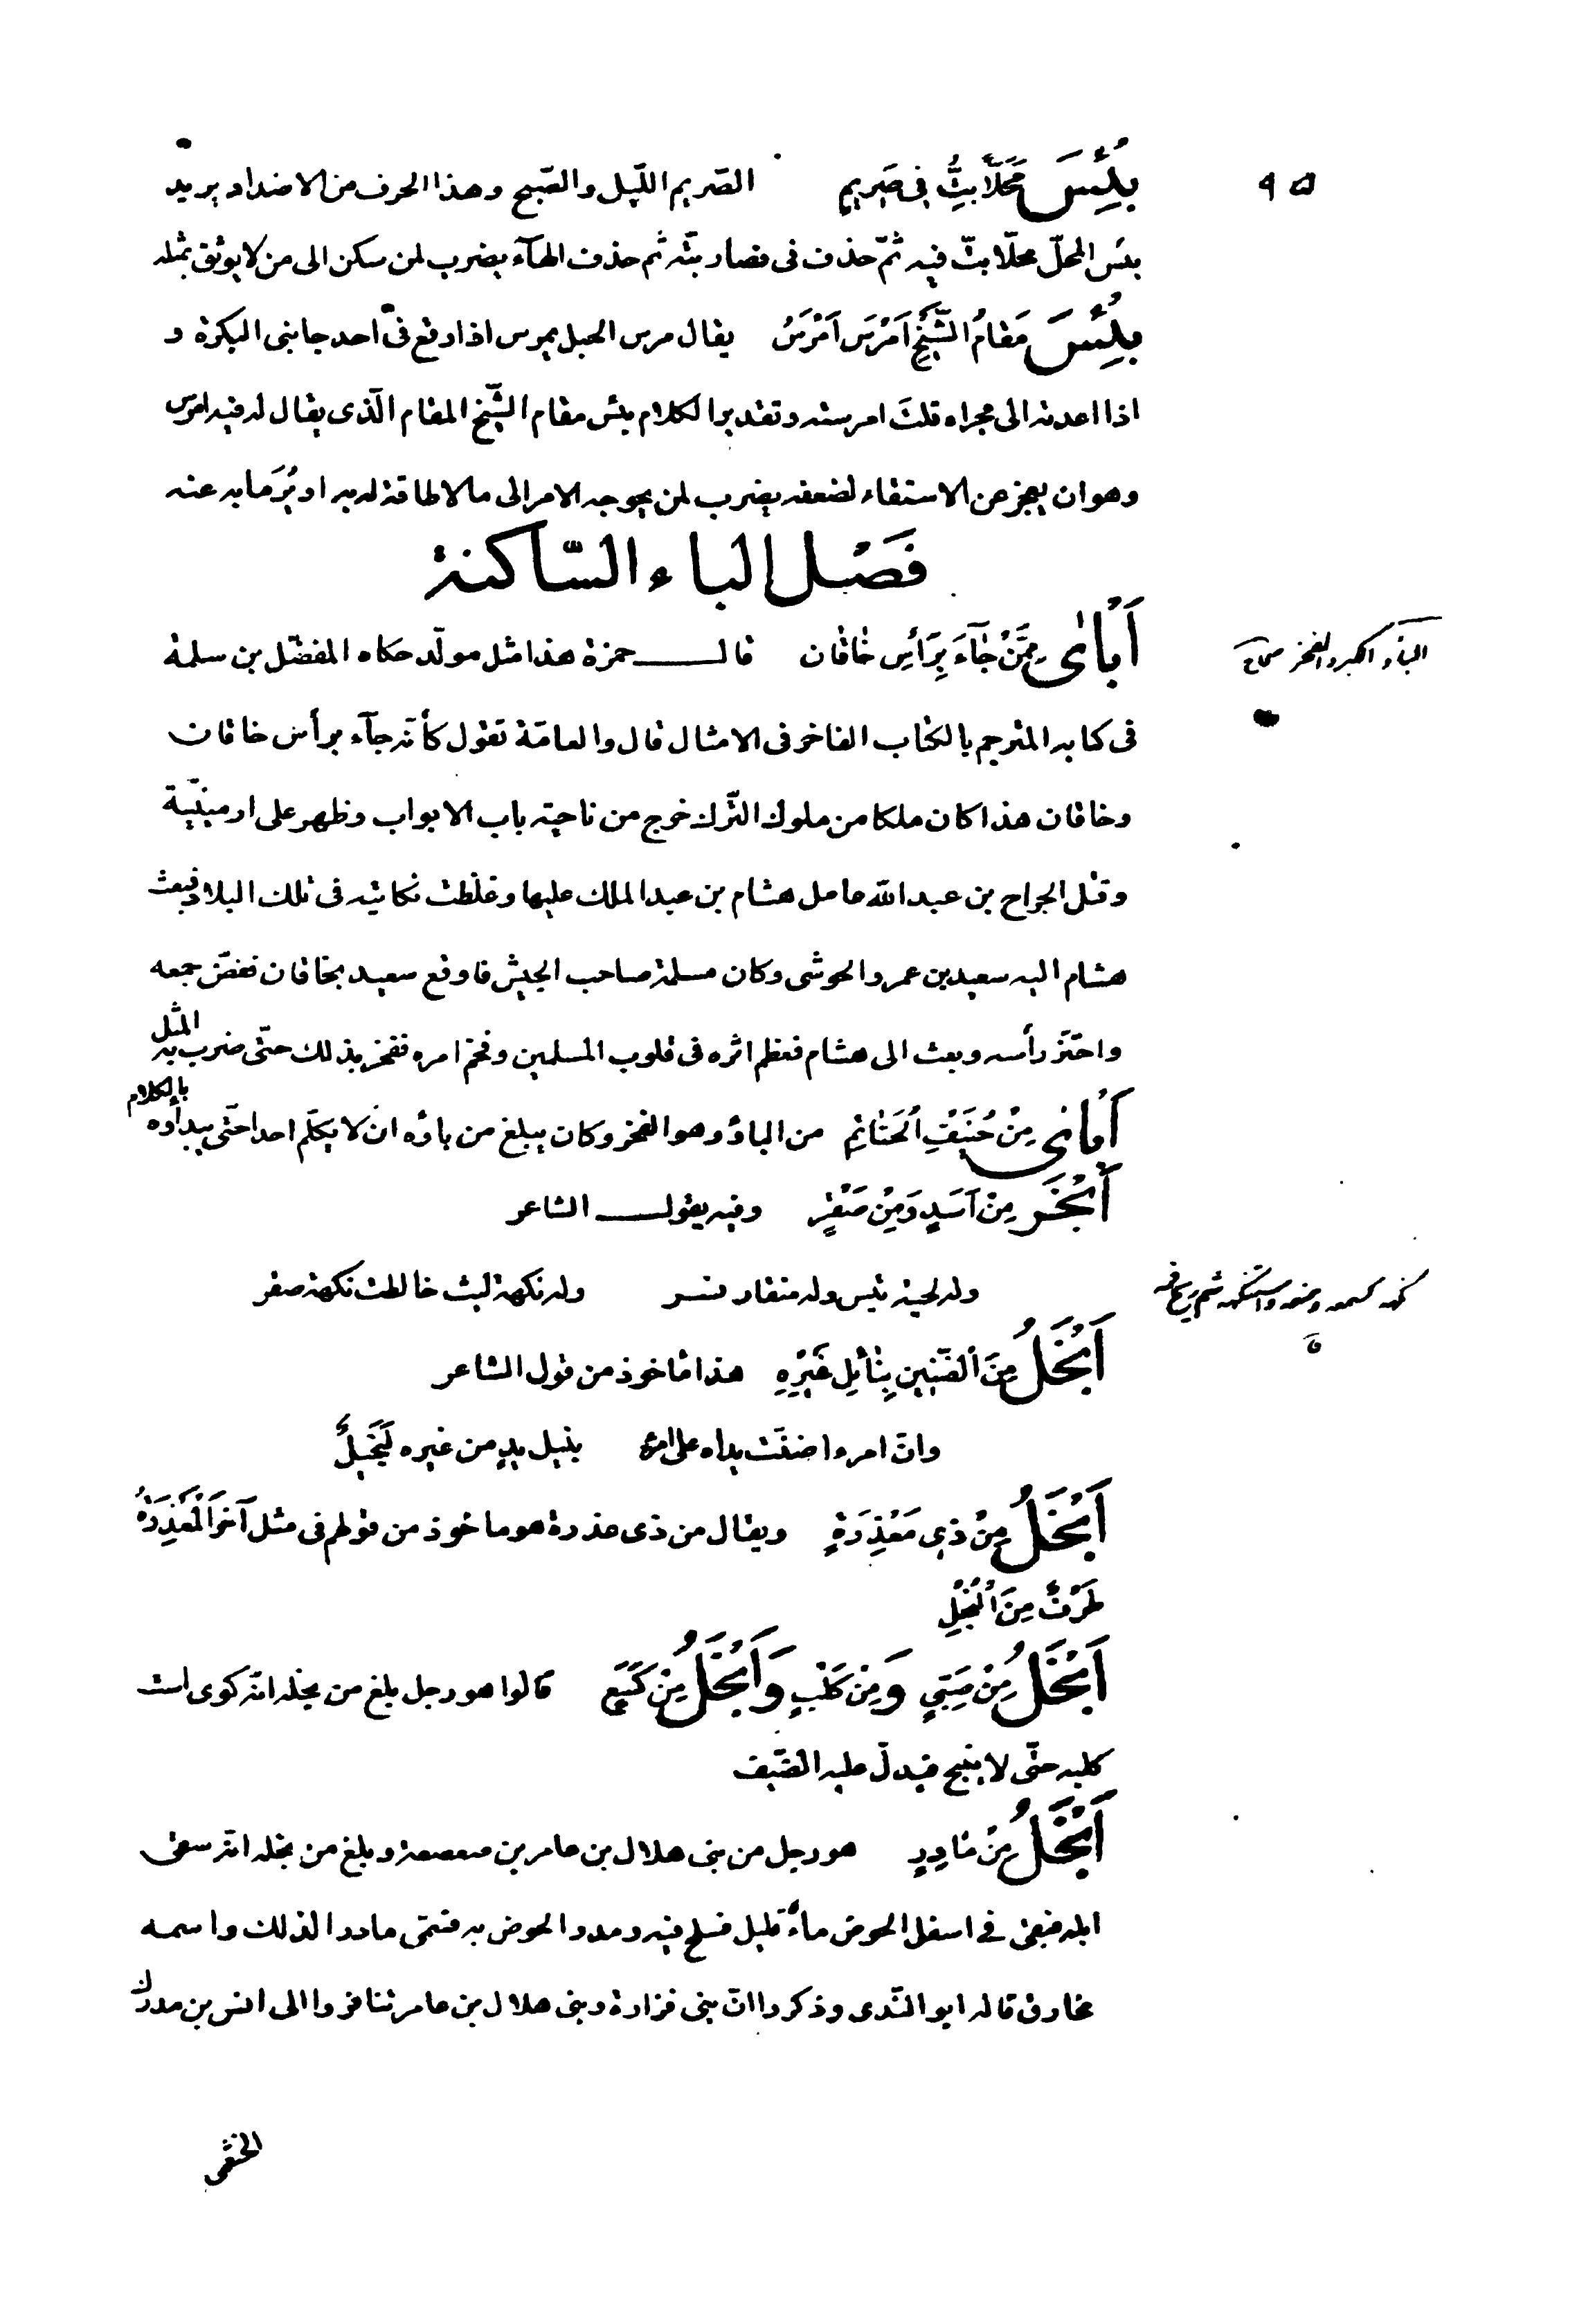 ٩٥
بِئْسَ مَحَلًّا بِتُّ فِي صَرِيمٍ الصّريم اللّيل والصّبح وهذا الحرف من الاضداد يريد
بئس المحلّ محلّا بتّ فيه ثمّ حذف فى فصار بتّه ثم حذف الهآء يضرب لمن سكن الى من لا يوثق بمثله
بِئْسَ مَقامُ الشَّيْخِ اَمْرِسْ اَمْرِسْ يقال مرس الحبل يمرس اذا وقع فى احد جانبى البكرة و
اذا اعدته الى مجراه قلت امرسته وتقدير الكلام بئس مقام الشّيخ المقام الّذى يقال له فيه امرس
وهو ان يعجز عن الاستقاء لضعفه يضرب لمن يحوجه الامر الى ما لا طاقة له به او يُرمَا به عنه
فَصْل الباء السّاكنة
اَبْأٰى مِمَّنْ جٰآءَ بِرَأسِ خٰاقان قال حمزة هذا مثل مولّد حكاه المفضّل بن سلمة
البأو الكبر والفخر صحاح
فى كتابه المترجم بالكتاب الفاخر فى الامثال قال والعامّة تقول كأنّه جآء برأس خاقان
وخاقان هذا كان ملكا من ملوك التّرك خرج من ناحية باب الابواب وظهر على ارمينيّة
وقتل الجراح بن عبد الله عامل هشام بن عبد الملك عليها وغلظت نكايته فى تلك البلاد فبعث
هشام اليه سعيد بن عمرو الحوشى وكان مسلمة صاحب الجيش فاوقع سعيد بخاقان ففضّ جمعه
واحتزّ رأسه وبعث الى هشام فعظم اثره فى قلوب المسلمين وفخم امره ففخر بذلك حتّى ضرب به المثل
اَبْأٰى مِنْ حُنَيْفِ الْحَنٰاتِمِ من البأو وهو الفخر وكان يبلغ من بأوه ان لا يكلّم احدا حتّى يبدأوه بالكلام
اَبْخَر مِنْ اَسَدٍ وَمِنْ صَقْرٍ وفيه يقول الشاعر
وله لحية تيس وله منقار نسر وله نكهة ليث خالطت نكهة صقر
اَبْخَلُ مِنَ الضَّنِينِ بِنٰائِلِ غَيْرِهِ هذا مأخوذ من قول الشاعر
وانّ امرءا ضنّت يداه على امرء بنيل يدٍ من غيره لَبَخِيلُ
اَبْخَلُ مِنْ ذِي مَعْذِرَةٍ ويقال من ذى عذرة هو ماخوذ من قولهم فى مثل آخر اَلْمَعْذِرَةُ
طَرَفٌ مِنَ الْبُخْلِ
اَبْخَلُ مِنْ صَبِيٍ وَمِنْ كَلْبٍ وَاَبْخَلُ مِنْ كُسَعٍ قالوا هو رجل بلغ من بخله انّه كوى است
كلبه حتّى لا ينبح فيدلّ عليه الضّيف
اَبْخَلُ مِنْ مٰادِرٍ هو رجل من بنى هلال بن عامر بن صعصعة وبلغ من بخله انّه سقى
ابله فبقى فى اسفل الحوض ماءٌ قليل فسلح فيه ومدر الحوض به فسمّى مادرا لذلك واسمه
مخارق قاله ابو النّدى وذكروا انّ بنى فزارة وبنى هلال بن عامر تنافروا الى انس بن مدرك
الخثعمى